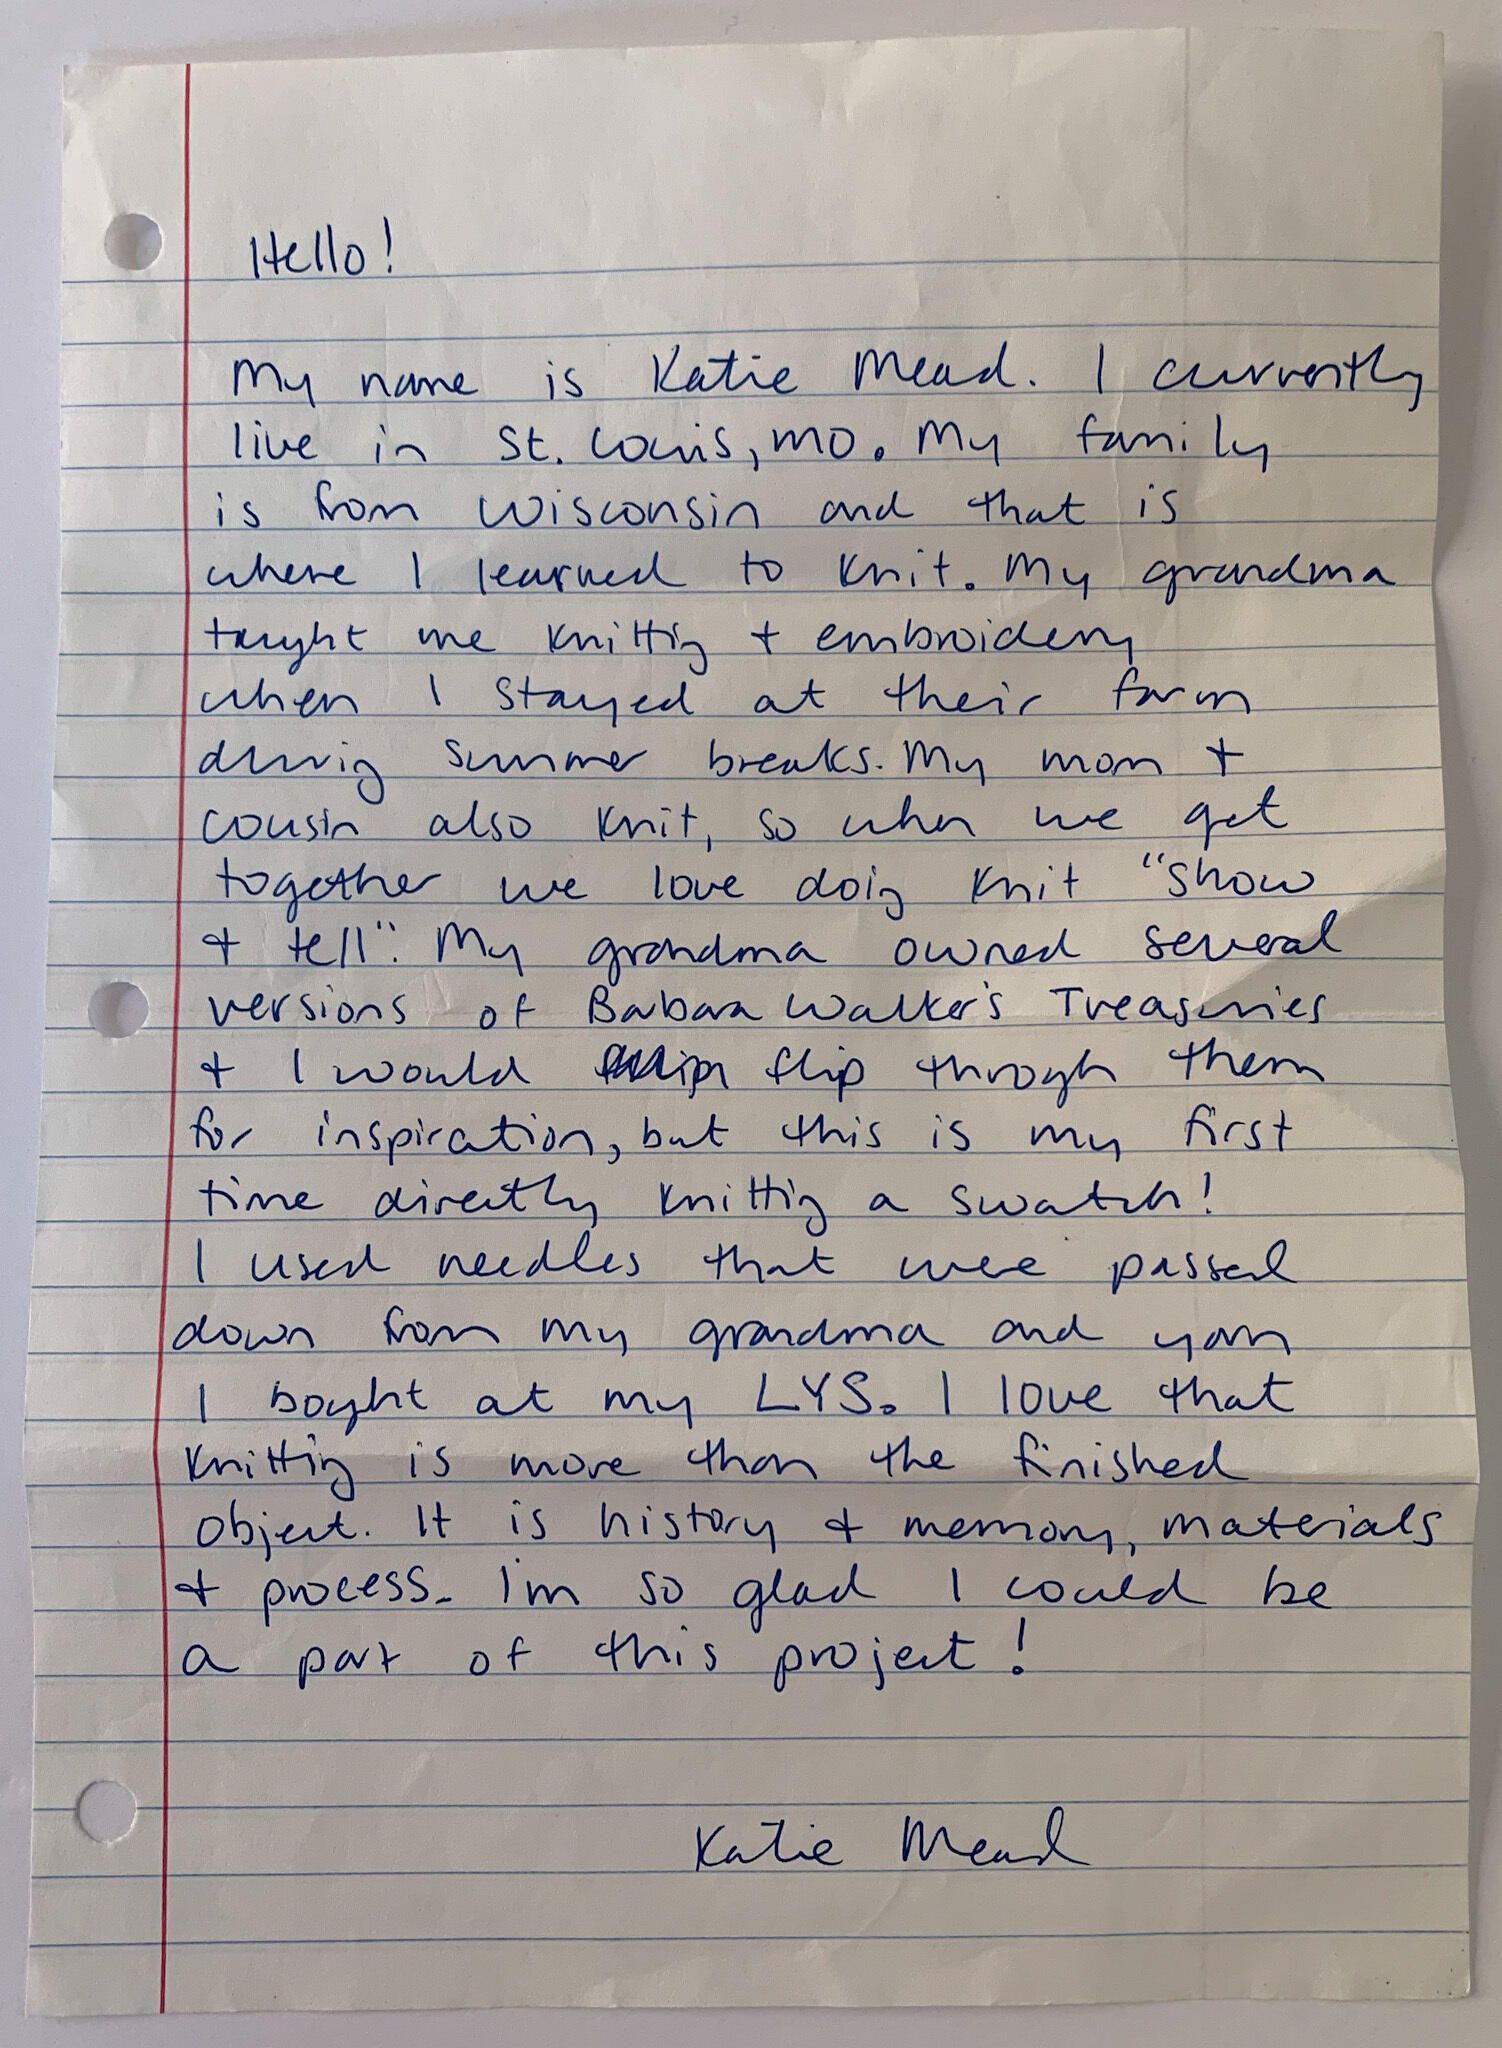 Hello!
My name is Katie Mead. I currently
live in St. Louis, MO. My family
is from Wisconsin and that is
where I learned to knit. My grandma
taught me knitting + embroidery
when I stayed at their farm
during summer breaks. My mom +
cousin also knit, so when we get
together we love doing knit "show
+ tell". My grandma owned several
versions of Barbara Walker's Treasuries
+ I would flip through them
for inspiration, but this is my first
time directly knitting a swatch!
I used needles that were passed
down from my grandma and yarn
I bought at my LYS. I love that
knitting is more than the finished
object. It is history + memory, materials
+ process. I'm so glad I could be
a part of this project!
Katie Mead